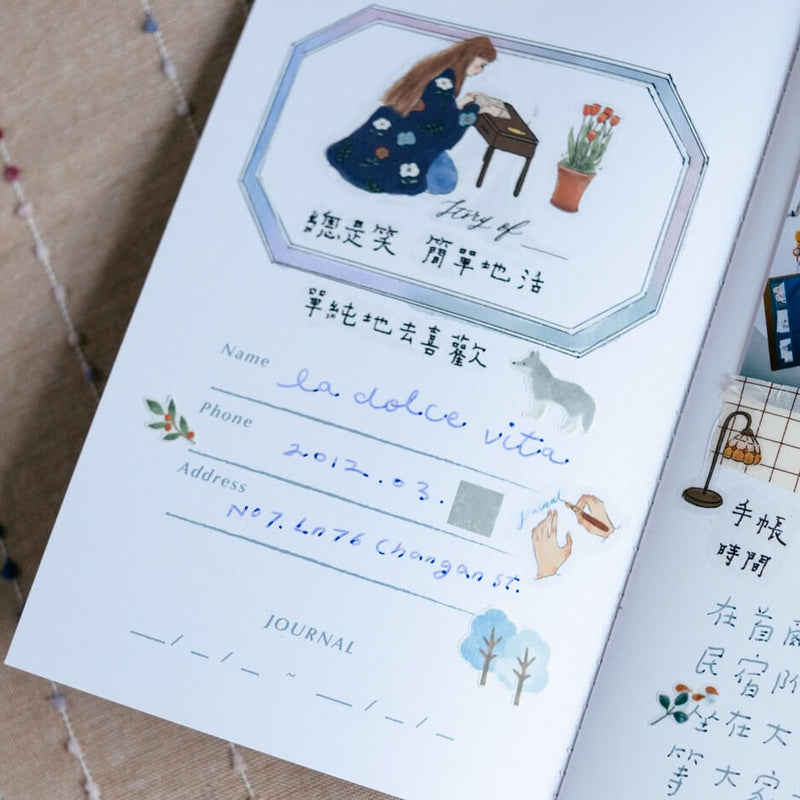 Story of
總是笑 簡單地活
單純地去喜歡
Name la dolce vita
Phone 2012.03.
Address Nº7. Ln76 Changan st.
Journal
JOURNAL
__/__/__ ~ __/__/__
手帳
時間
在首
民宿
坐在大
等大家